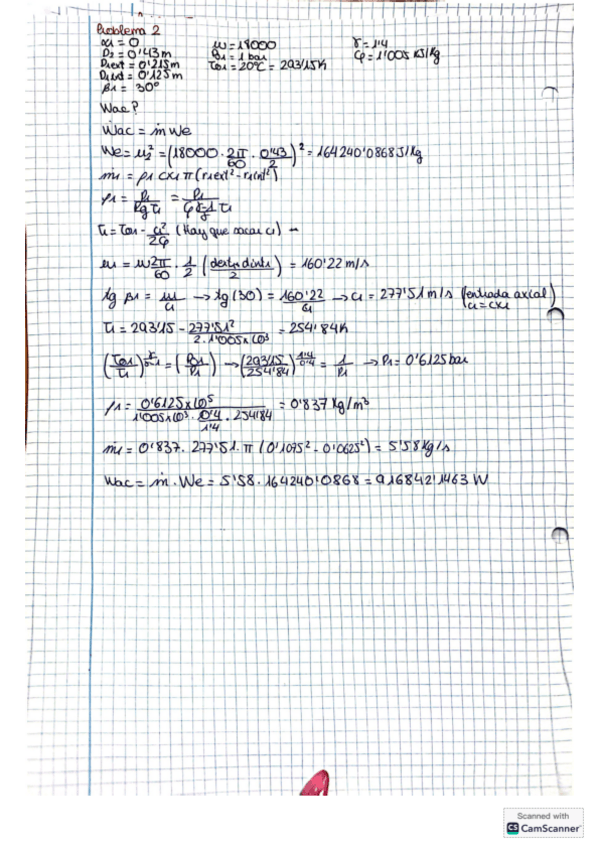 Problema 2
α1 = 0
D2 = 0'43m
D1ext = 0'215m
D1int = 0'125m
β1 = 30º
ω = 18000
P01 = 1 bar
T01 = 20ºC = 293'15K
γ = 1'4
Cp = 1'005 KJ/Kg
Wac?
Ẇac = ṁ We
We = u2² = (18000 · 2π/60 · 0'43/2)² = 164240'0868 J/Kg
ṁ1 = ρ1 cx1 π (r1ext² - r1int²)
ρ1 = P1/(Rg T1) = P1/(Cp (γ-1)/γ T1)
T1 = T01 - c1²/2Cp (Hay que sacar c1) -
u1 = ω 2π/60 · 1/2 (dext1 dint1/2) = 160'22 m/s
tg β1 = u1/c1 → tg(30) = 160'22/c1 → c1 = 277'51 m/s (entrada axial) c1 = cx1
T1 = 293'15 - 277'51²/(2·1'005x10³) = 254'84K
(T01/T1)^(γ/(γ-1)) = (P01/P1) → (293'15/254'84)^(1'4/0'4) = 1/P1 → P1 = 0'6125 bar
ρ1 = 0'6125x10⁵/(1'005x10³ · 0'4/1'4 · 254'84) = 0'837 Kg/m³
ṁ1 = 0'837 · 277'51 · π (0'1075² - 0'0625²) = 5'58 Kg/s
Wac = ṁ · We = 5'58 · 164240'0868 = 916842'1463 W
Scanned with
CS CamScanner